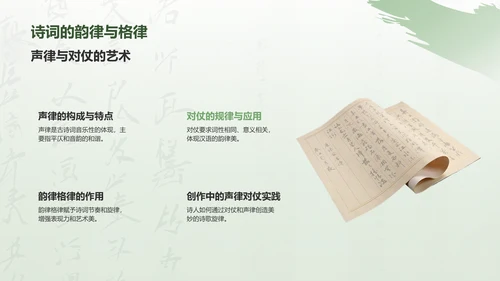 诗词的韵律与格律
声律与对仗的艺术
声律的构成与特点
声律是古诗词音乐性的体现，主
要指平仄和音韵的和谐。
对仗的规律与应用
对仗要求词性相同、意义相关，
体现汉语的韵律美。
韵律格律的作用
韵律格律赋予诗词节奏和旋律，
增强表现力和艺术美。
创作中的声律对仗实践
诗人如何通过对仗和声律创造美
妙的诗歌旋律。